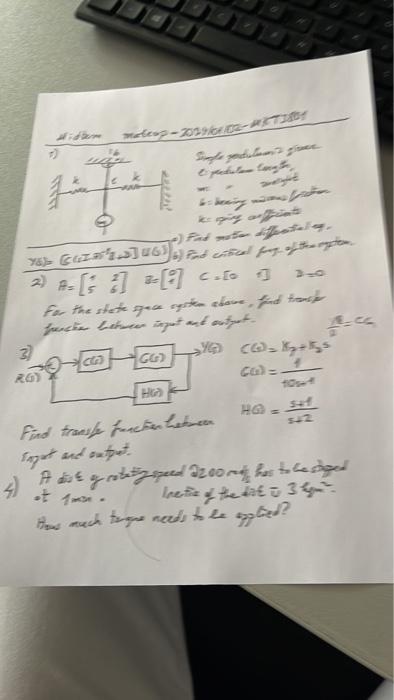 Midterm makeup - MKT3801
1)
b
k c k
Single pendulum is given
l: pendulum length,
m: " weight
b: bearing viscous friction
k: spring coefficients
a) Find motion differential eq.
Y(s) = [C(sI-A)⁻¹B+D] U(s) b) Find critical freq. of the system.
2) A = [1 2 5 6] B = [0 1] C = [0 1] D = 0
For the state space system above, find transfer
function between input and output.
3)
R(s) C(s) G(s) Y(s) C(s) = Kp + KDs
G(s) = 1 / 10s+1
H(s) H(s) = s+1 / s+2
Find transfer function between
input and output.
4) A disk of rotating speed 2200 has to be stopped
at 1 min. Inertia of the disk is 3 kgm².
How much torque needs to be applied?